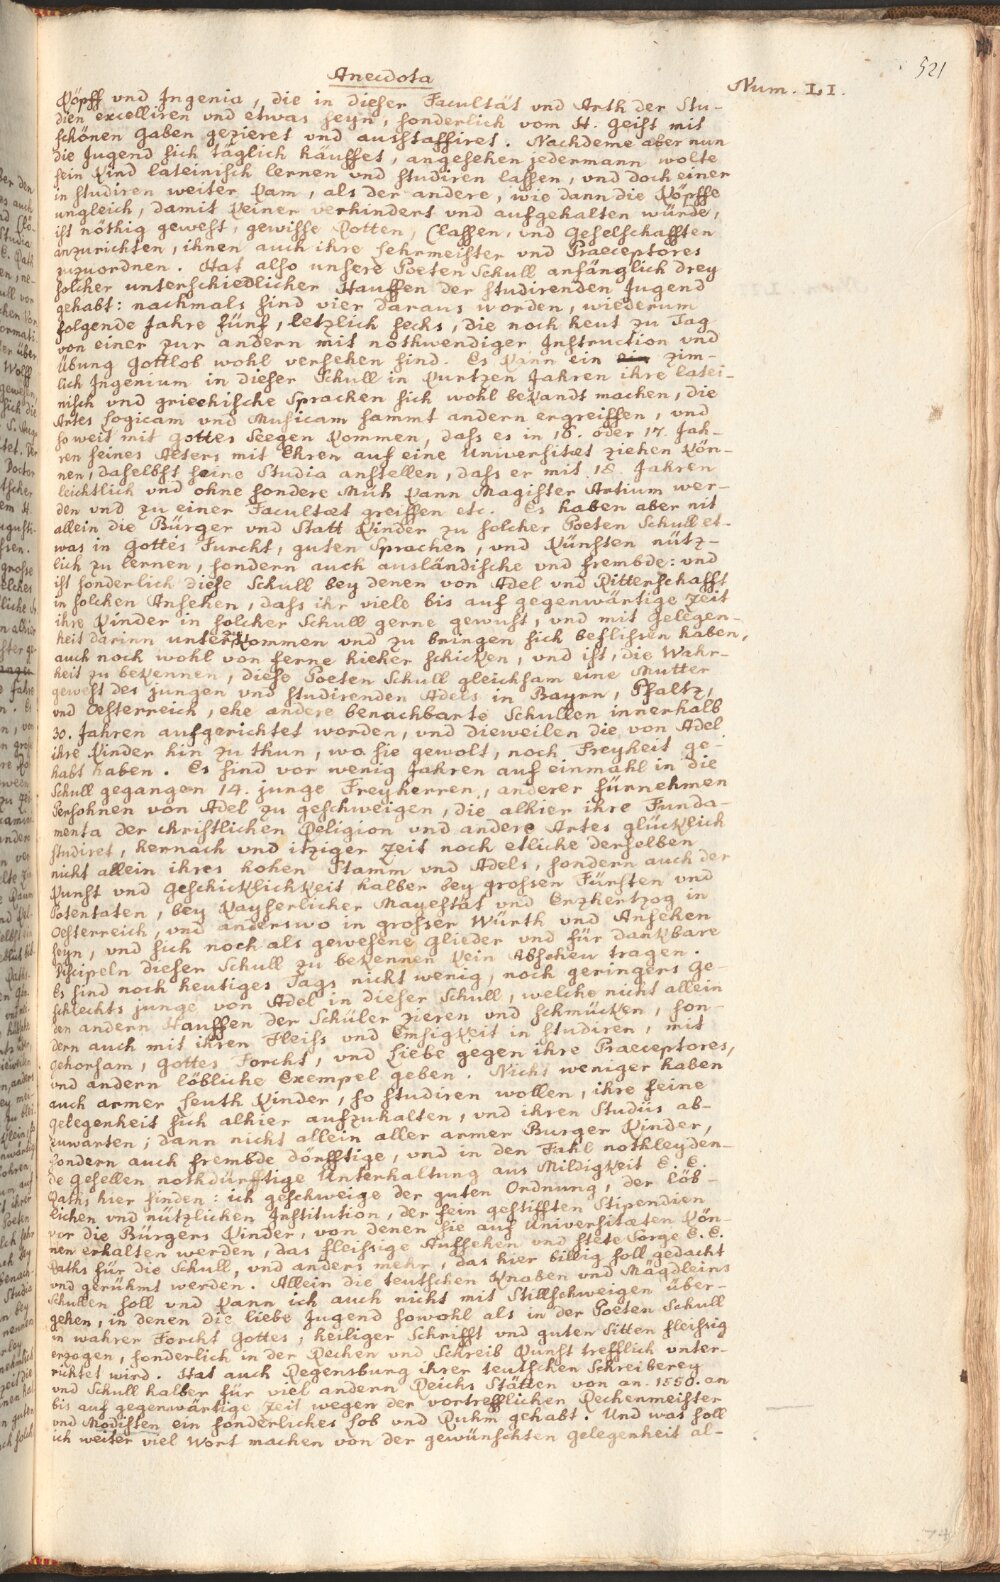 521
Anecdota
Num. LI.
Köpff vnd Ingenia, die in dieser Facultät vnd Arth der Stu-
dien excelliren vnd etwas seyn, sonderlich vom H. Geist mit
schönen Gaben gezieret vnd ausstaffiret. Nachdeme aber nun
die Jugend sich täglich häuffet, angesehen jedermann wolte
sein Kind lateinisch lernen vnd studiren lassen, vnd doch einer
in studiren weiter kam, als der andere, wie dann die Köpffe
ungleich, damit keiner verhindert vnd aufgehalten würde,
ist nöthig gewest, gewisse Rotten, Classen, vnd Geselschafften
anzurichten, ihnen auch ihre Lehrmeister vnd Praeceptores
zuzuordnen. Hat also unsere Poeten Schull anfänglich drey
solcher unterschiedlicher Hauffen der studirenden Jugend
gehabt: nachmals sind vier daraus worden, wiederum
folgende Jahre fünf, letzlich sechs, die noch heut zu Tag
von einer zur andern mit nothwendiger Instruction vnd
Übung Gottlob wohl versehen sind. Es kann ein zim-
lich Ingenium in dieser Schull in kurtzen Jahren ihre latei-
nisch vnd griechische Sprachen sich wohl bekandt machen, die
Artes Logicam vnd Musicam sammt andern ergreiffen, vnd
so weit mit Gottes Seegen kommen, dass es in 16. oder 17. Jah-
ren seines Alters mit Ehren auf eine Universitæt ziehen kön-
nen, daselbst seine Studia anstellen, dass er mit 18. Jahren
leichtlich vnd ohne sondere Müh kann Magister Artium wer-
den vnd zu einer Facultæt greiffen etc. Es haben aber nit
allein die Bürger vnd Statt Kinder zu solcher Poeten Schull et-
was in Gottes Furcht, guten Sprachen, vnd Künsten nütz-
lich zu lernen, sondern auch ausländische vnd frembde: vnd
ist sonderlich diese Schull bey denen von Adel vnd Ritterschafft
in solchen Ansehen, dass ihr viele bis auf gegenwärtige Zeit
ihre Kinder in solcher Schull gerne gewust, vnd mit Gelegen-
heit darinn unterzukommen vnd zu bringen sich beflissen haben,
auch noch wohl von ferne hieher schicken, vnd ist, die Wahr-
heit zu bekennen, diese Poeten Schull gleichsam eine Mutter
gewest des jungen vnd studirenden Adels in Bayrn, Pfaltz,
vnd Oesterreich, ehe andere benachbarte Schullen innerhalb
30. Jahren aufgerichtet worden, vnd dieweilen die von Adel
ihre Kinder hin zu thun, wo sie gewolt, noch Freyheit ge-
habt haben. Es sind vor wenig Jahren auf einmahl in die
Schull gegangen 14. junge Freyherren, anderer fürnehmen
Persohnen von Adel zu geschweigen, die alhier ihre Funda-
menta der christlichen Religion vnd andere Artes glücklich
studiret, hernach vnd itziger Zeit noch etliche derselben
nicht allein ihres hohen Stamm vnd Adels, sondern auch der
Kunst vnd Geschicklichkeit halber bey grossen Fürsten vnd
Potentaten, bey Kayserlicher Mayestät vnd Erzhertzog in
Oesterreich, vnd anderswo in grosser Würth vnd Ansehen
seyn, vnd sich noch als gewesene Glieder vnd für dankbare
Discipeln dieser Schull zu bekennen kein Abscheu tragen.
Es sind noch heutiges Tags nicht wenig, noch geringers Ge-
schlechts junge von Adel in dieser Schull, welche nicht allein
den andern Hauffen der Schüler zieren vnd schmücken, son-
dern auch mit ihren Fleiss vnd Emsigkeit in studiren, mit
Gehorsam, Gottes Forcht, vnd Liebe gegen ihre Praeceptores,
vnd andern löbliche Exempel geben. Nicht weniger haben
auch armer Leuth Kinder, so studiren wollen, ihre feine
Gelegenheit sich alhier aufzuhalten, vnd ihren Studiis ab-
zuwarten; dann nicht allein aller armer Burger Kinder,
sondern auch frembde dörfftige, vnd in den Fahl nothleyden-
de Gesellen nothdürfftige Unterhaltung aus Mildigkeit E. E.
Raths hier finden: ich geschweige der guten Ordnung, der löb-
lichen vnd nützlichen Institution, der fein gestifften Stipendien
vor die Bürgers Kinder, von denen sie auf Universitæten kön-
nen erhalten werden, das fleissige Aufsehen vnd stete Sorge E. E.
Raths für die Schull, vnd anders mehr, das hier billig soll gedacht
vnd gerühmt werden. Allein die teutschen Knaben vnd Mägdleins
Schullen soll vnd kann ich auch nicht mit Stillschweigen über-
gehen, in denen die liebe Jugend sowohl als in der Poeten Schull
in wahrer Forcht Gottes, heiliger Schrifft vnd guten Sitten fleissig
erzogen, sonderlich in der Rechen vnd Schreib Kunst trefflich unter-
richtet wird. Hat auch Regensburg ihrer teutschen Schreiberey
vnd Schull halber für viel andern Reichs Stätten von an. 1550. an
bis auf gegenwärtige Zeit wegen der vortrefflichen Rechenmeister
vnd Modisten ein sonderliches Lob vnd Ruhm gehabt. Und was soll
ich weiter viel Wort machen von der gewünschten Gelegenheit al-